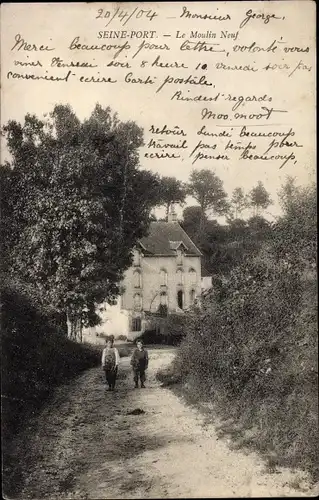 20/4/04 Monsieur George.
SEINE-PORT. — Le Moulin Neuf
Merci beaucoup pour lettre, volonté vous
vinir Vendredi soir 8 heure 10. Vendredi soir pas
convenient ecrire Carti postale.
Kindest regards
Moo moot
retoir Lundi beaucoup
travail pas temps pour la
écrire, penser beaucoup.